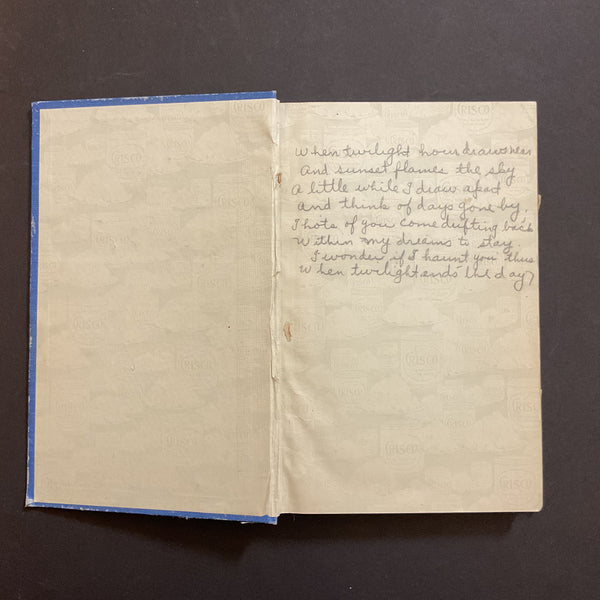 When twilight hour draws near
And sunset flames the sky
A little while I draw apart
And think of days gone by,
Thots of you come drifting back
Within my dreams to stay.
I wonder if I haunt you thus
When twilight ends the day
CRISCO
CRISCO
CRISCO
CRISCO